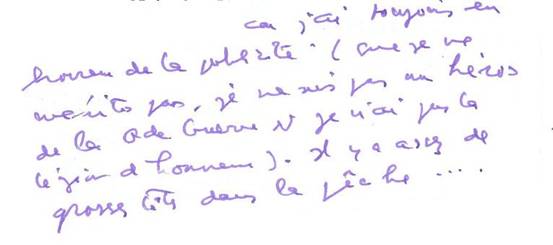 car j'ai toujours eu
horreur de la publicité (que je ne
mérite pas, je ne suis pas un héros
de la Gde Guerre et je n'ai pas la
légion d'honneur). Il y a assez de
grosses têtes dans la pêche ....